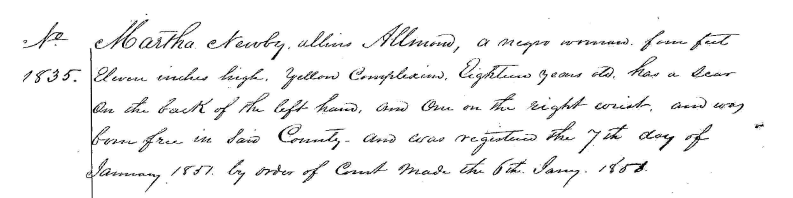 No Martha Newby. allias Allmond, a negro woman. four feet
1835. Eleven inches high. Yellow Complexion. Eighteen years old. has a Scar
on the back of the left hand, and One on the right wrist. and was
born free in Said County - and was registered the 7th day of
January 1851. by order of Court made the 6th Jany. 1851.